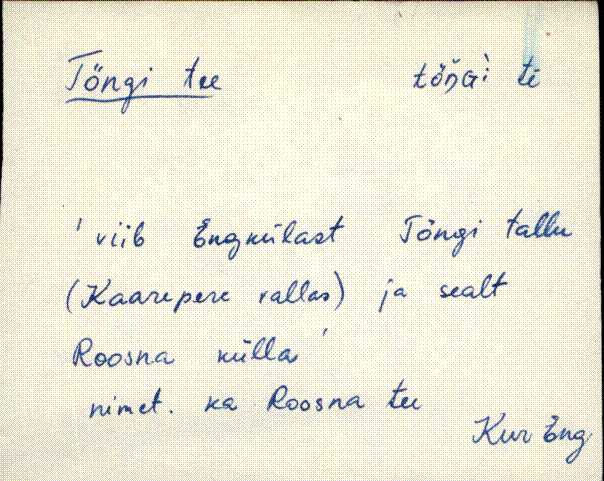 Tõngi tee tõŋGì tē
' viib Engkülast Tõngi tallu
(Kaarepere vallas) ja sealt
Roosna külla '
nimet. ka Roosna tee
Kur Eng